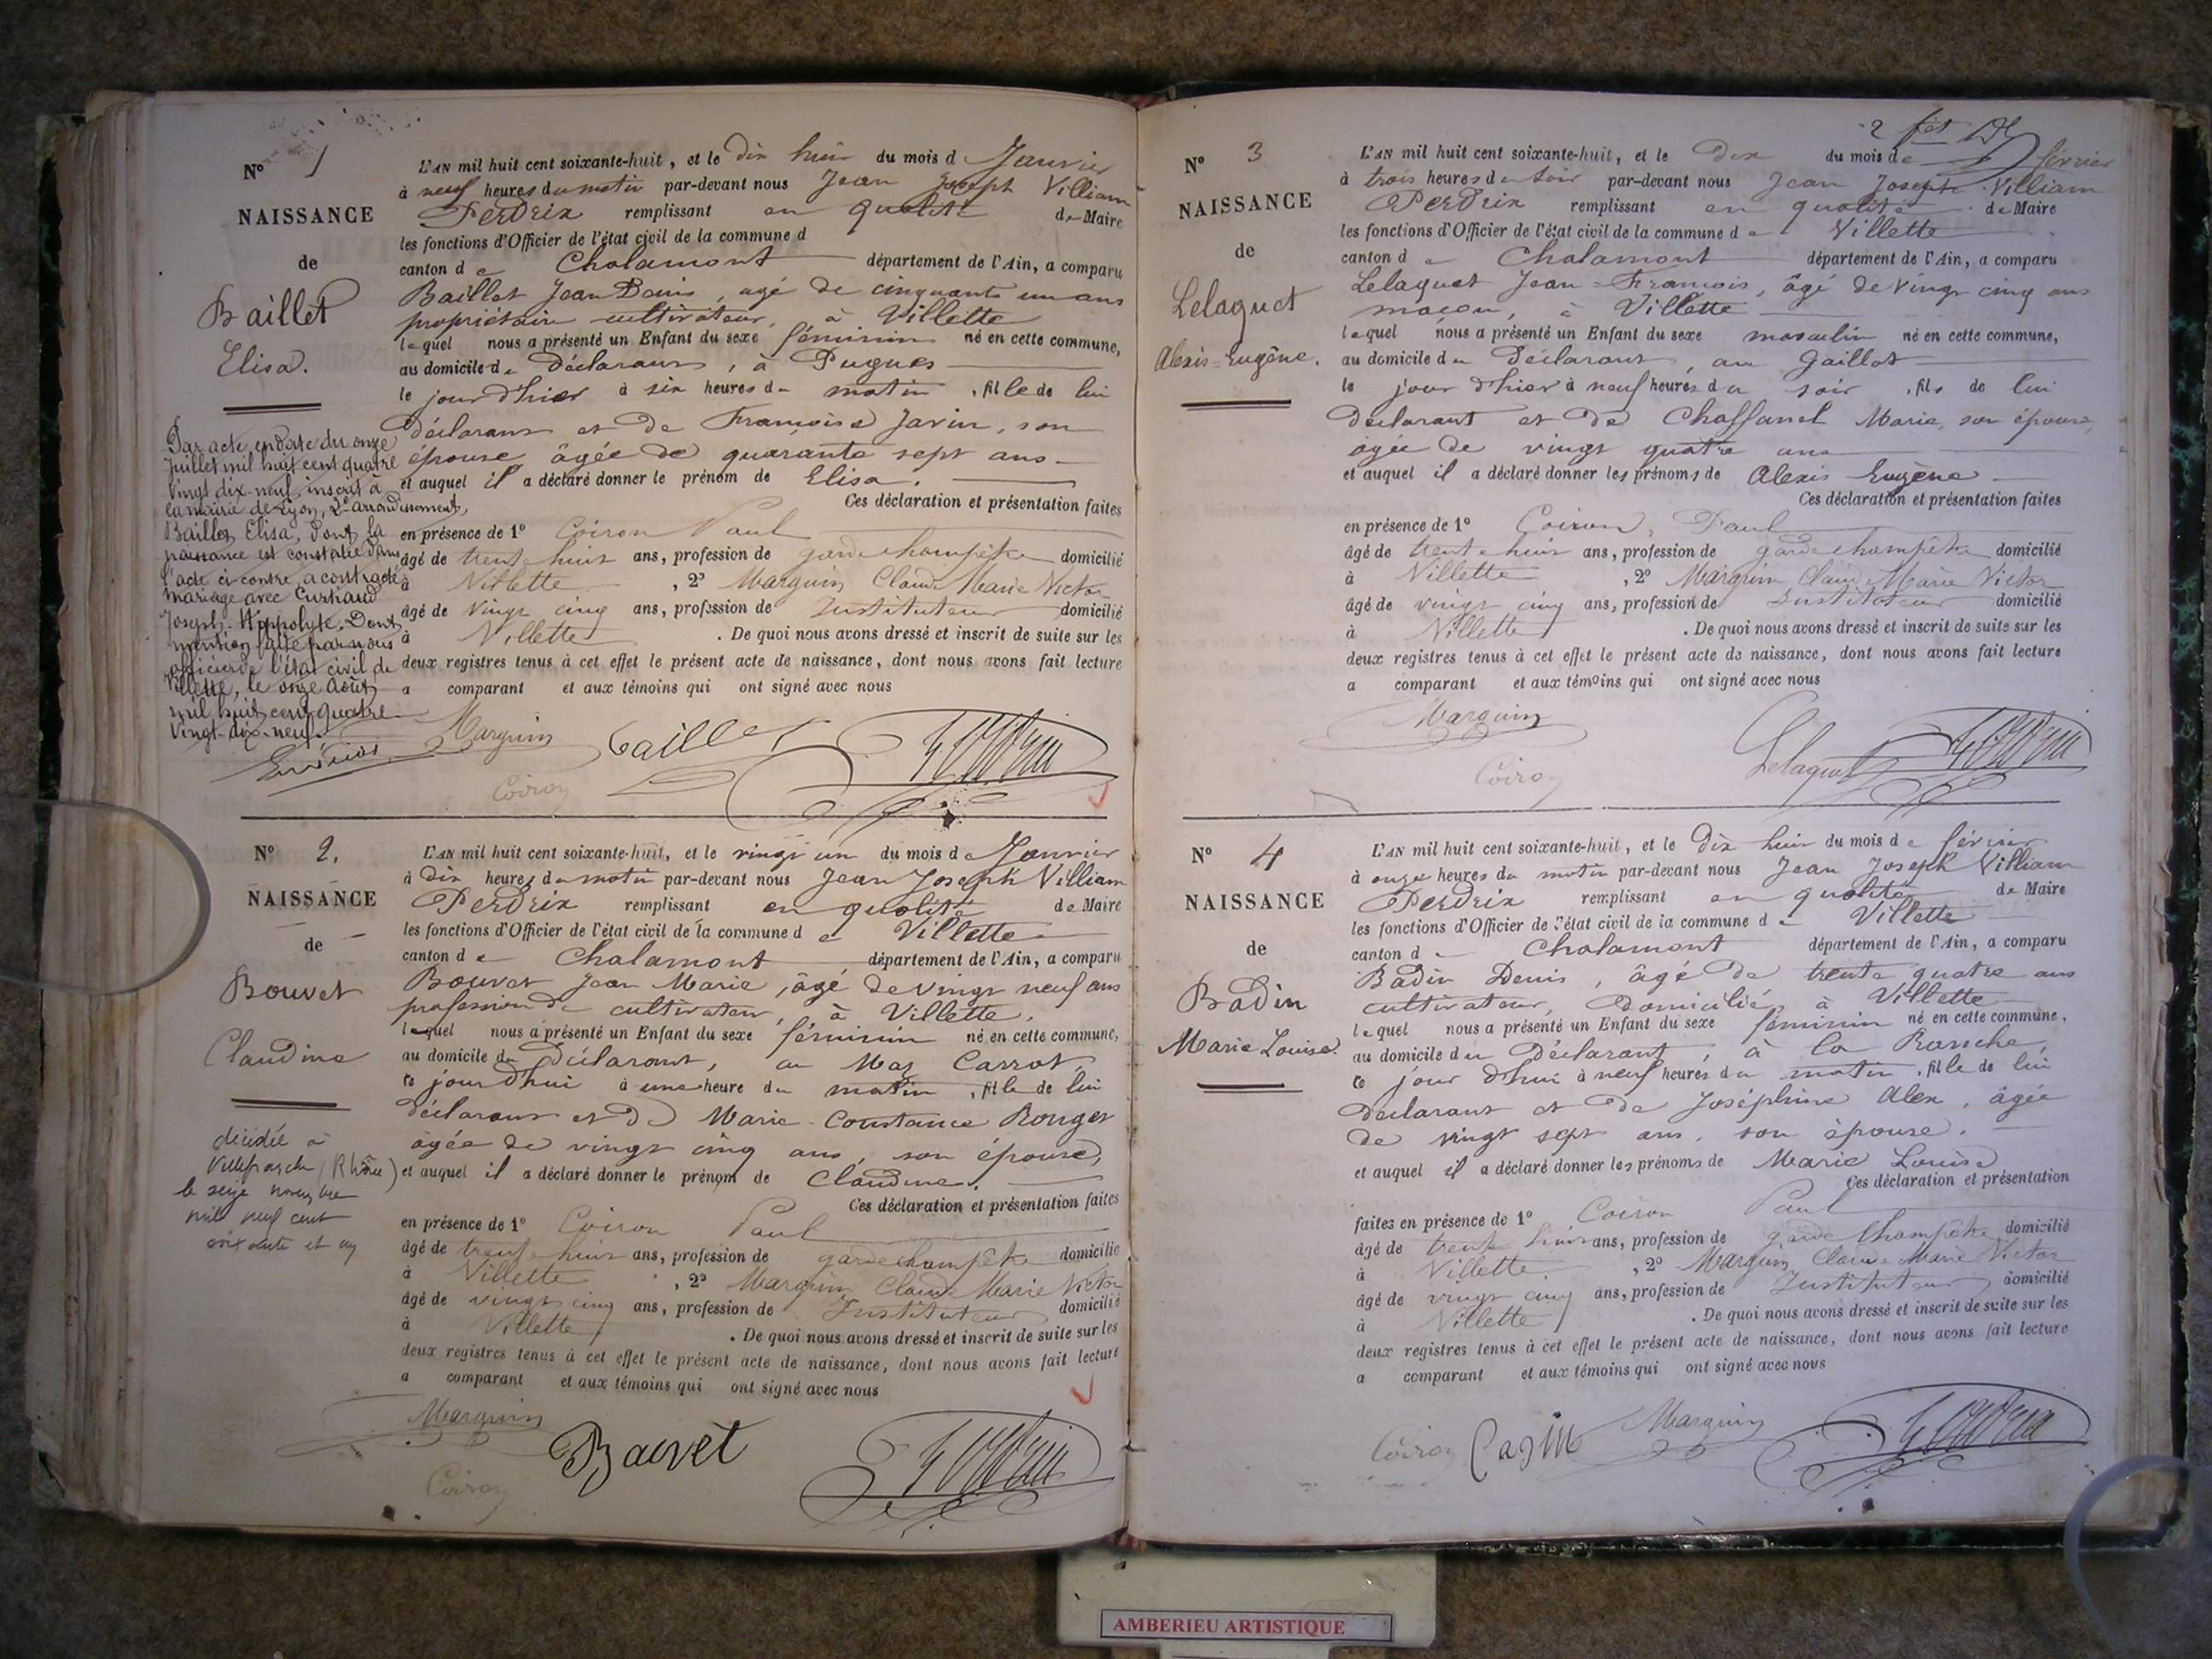 N° 1
NAISSANCE
de
Baillet
Elisa.
Par acte en date du onze
Juillet mil huit cent quatre
vingt dix-neuf inscrit à
la mairie de Lyon, 2e arrondissement,
Baillet Elisa, dont la
naissance est constatée dans
l'acte ci-contre, a contracté
mariage avec
Joseph Hippolyte. Dont
mention faite par nous
officier de l'état civil de
Villette, le onze Août
mil huit cent quatre
vingt-dix-neuf.
L'AN mil huit cent soixante-huit, et le dix huit du mois d Janvier
à neuf heures du matin par-devant nous Jean Joseph Villiam
Perdrix remplissant en qualité de Maire
les fonctions d'Officier de l'état civil de la commune d
canton de Chalamont département de l'Ain, a comparu
Baillet Jean Louis, agé de cinquante un ans
propriétaire cultivateur, à Villette
lequel nous a présenté un Enfant du sexe féminin né en cette commune,
au domicile du déclarant, à Pugues
le jour d'hier à six heures du matin, fille de lui
déclarant et de Françoise Javin, son
épouse âgée de quarante sept ans
et auquel il a déclaré donner le prénom de Elisa.
Ces déclaration et présentation faites
en présence de 1° Coiron Paul
âgé de trente huit ans, profession de garde champêtre domicilié
à Villette, 2° Marguin Claude Marie Victor
âgé de vingt cinq ans, profession de Instituteur domicilié
à Villette. De quoi nous avons dressé et inscrit de suite sur les
deux registres tenus à cet effet le présent acte de naissance, dont nous avons fait lecture
a comparant et aux témoins qui ont signé avec nous
Marguin Baillet Perdrix
Coiron
N° 2.
NAISSANCE
de
Bouvet
Claudine
décédée à
Villefranche (Rhône)
le seize novembre
mil neuf cent
soixante et un
L'AN mil huit cent soixante-huit, et le vingt un du mois de Janvier
à dix heures du matin par-devant nous Jean Joseph Villiam
Perdrix remplissant en qualité de Maire
les fonctions d'Officier de l'état civil de la commune de Villette
canton de Chalamont département de l'Ain, a comparu
Bouvet Jean Marie, âgé de vingt neuf ans
profession de cultivateur, à Villette,
lequel nous a présenté un Enfant du sexe féminin né en cette commune,
au domicile du Déclarant, au Mas Carrot,
ce jour d'hui à une heure du matin, fille de lui
déclarant et de Marie-Constance Rouget
âgée de vingt cinq ans, son épouse,
et auquel il a déclaré donner le prénom de Claudine.
Ces déclaration et présentation faites
en présence de 1° Coiron Paul
âgé de trente huit ans, profession de garde champêtre domicilié
à Villette, 2° Marguin Claude Marie Victor
âgé de vingt cinq ans, profession de Instituteur domicilié
à Villette. De quoi nous avons dressé et inscrit de suite sur les
deux registres tenus à cet effet le présent acte de naissance, dont nous avons fait lecture
a comparant et aux témoins qui ont signé avec nous
Marguin Bauvet Perdrix
Coiron
N° 3
NAISSANCE
de
Lelaquet
Alexis-Eugène.
L'AN mil huit cent soixante-huit, et le Dix du mois de février
à trois heures du soir par-devant nous Jean Joseph Villiam
Perdrix remplissant en qualité de Maire
les fonctions d'Officier de l'état civil de la commune de Villette
canton de Chalamont département de l'Ain, a comparu
Lelaquet Jean=François, âgé de vingt cinq ans
maçon, à Villette
lequel nous a présenté un Enfant du sexe masculin né en cette commune,
au domicile du déclarant, au Gaillot
le jour d'hier à neuf heures du soir, fils de lui
déclarant et de Chaffanel Marie, son épouse,
âgée de vingt quatre ans
et auquel il a déclaré donner les prénoms de Alexis Eugène
Ces déclaration et présentation faites
en présence de 1° Coiron, Paul
âgé de trente huit ans, profession de garde champêtre domicilié
à Villette, 2° Marguin Claude Marie Victor
âgé de vingt cinq ans, profession de Instituteur domicilié
à Villette. De quoi nous avons dressé et inscrit de suite sur les
deux registres tenus à cet effet le présent acte de naissance, dont nous avons fait lecture
a comparant et aux témoins qui ont signé avec nous
Marguin
Coiron Lelaquet Perdrix
N° 4
NAISSANCE
de
Badin
Marie Louise.
L'AN mil huit cent soixante-huit, et le dix huit du mois de février
à onze heures du matin par-devant nous Jean Joseph Villiam
Perdrix remplissant en qualité de Maire
les fonctions d'Officier de l'état civil de la commune de Villette
canton de Chalamont département de l'Ain, a comparu
Badin Denis, âgé de trente quatre ans
cultivateur, domicilié à Villette
lequel nous a présenté un Enfant du sexe féminin né en cette commune,
au domicile du Déclarant, à la Ranche,
ce jour d'hui à neuf heures du matin, fille de lui
déclarant et de Joséphine Alex, âgée
de vingt sept ans, son épouse.
et auquel il a déclaré donner les prénoms de Marie Louise
Ces déclaration et présentation
faites en présence de 1° Coiron Paul
âgé de trente huit ans, profession de garde champêtre domicilié
à Villette, 2° Marguin Claude Marie Victor
âgé de vingt cinq ans, profession de Instituteur domicilié
à Villette. De quoi nous avons dressé et inscrit de suite sur les
deux registres tenus à cet effet le présent acte de naissance, dont nous avons fait lecture
a comparant et aux témoins qui ont signé avec nous
Coiron Marguin Perdrix
AMBERIEU ARTISTIQUE